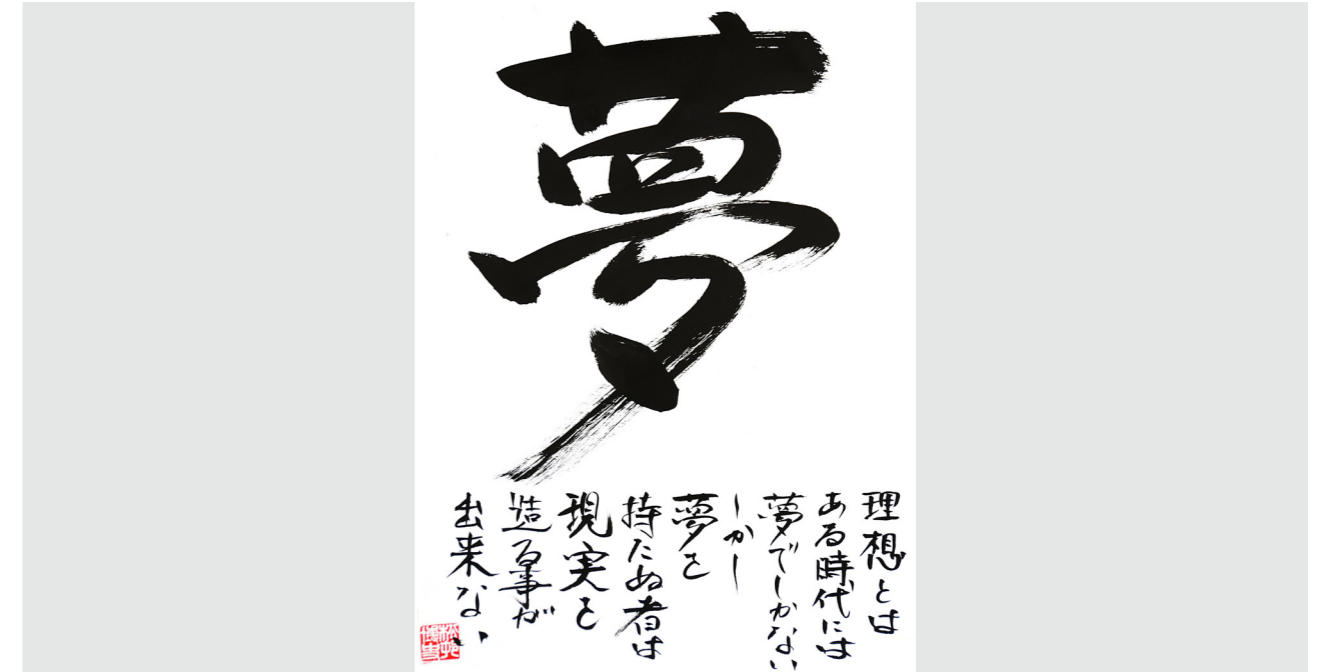 夢
理想とは
ある時代には
夢でしかない
しかし
夢を
持たぬ者は
現実を
造る事が
出来ない